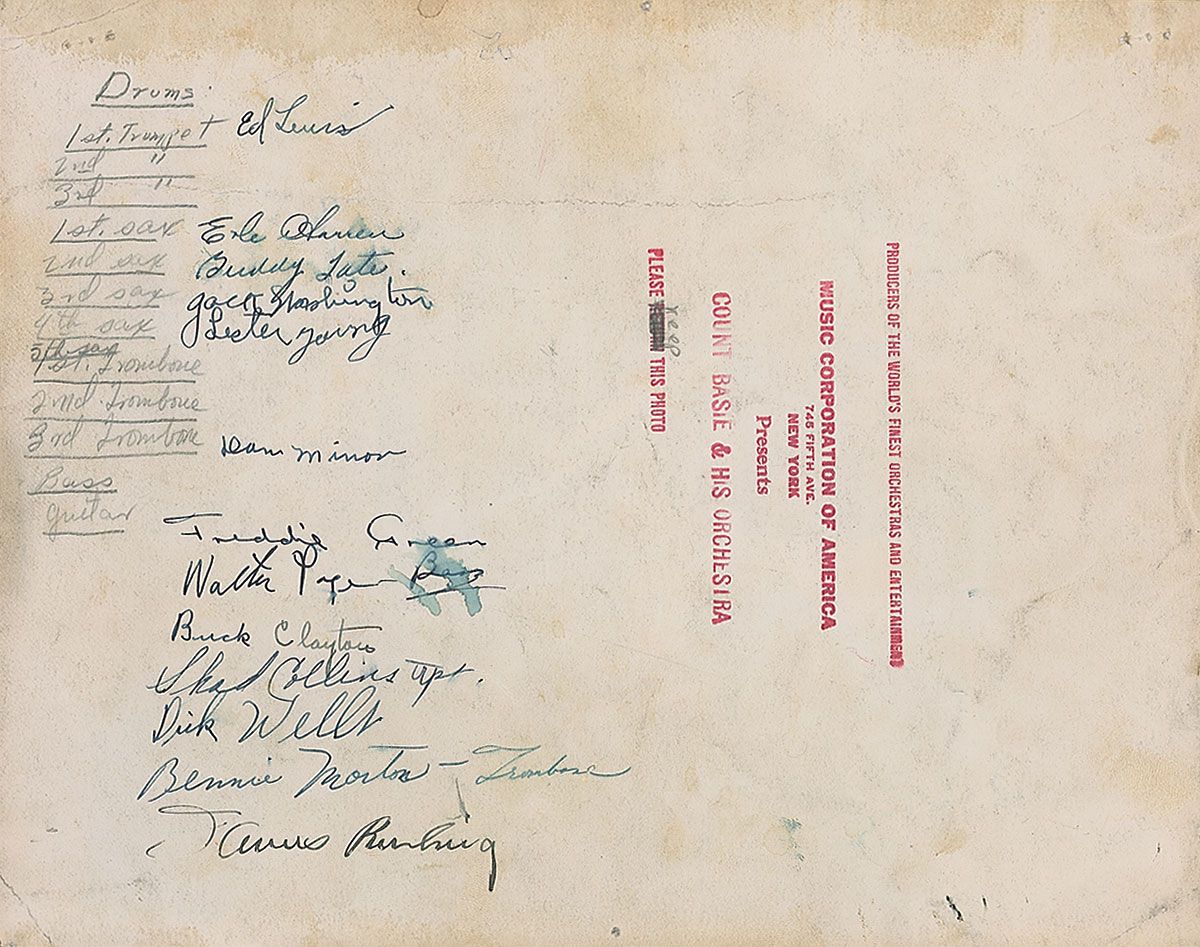 Drums.
1st. Trumpet Ed Lewis
2nd "
3rd "
1st. sax Erle Warren
2nd sax Buddy Tate.
3rd sax Jack Washington
4th sax Lester Young
5th sax
1st. Trombone
2nd Trombone
3rd Trombone Dan Minor
Bass
guitar
Freddie Green
Walter Page Bass
Buck Clayton
Shad Collins Tpt.
Dick Wells
Bennie Morton - Trombone
James Rushing
PLEASE RETURN THIS PHOTO
keep
COUNT BASIE & HIS ORCHESTRA
Presents
NEW YORK
745 FIFTH AVE.
MUSIC CORPORATION OF AMERICA
PRODUCERS OF THE WORLD'S FINEST ORCHESTRAS AND ENTERTAINMENT